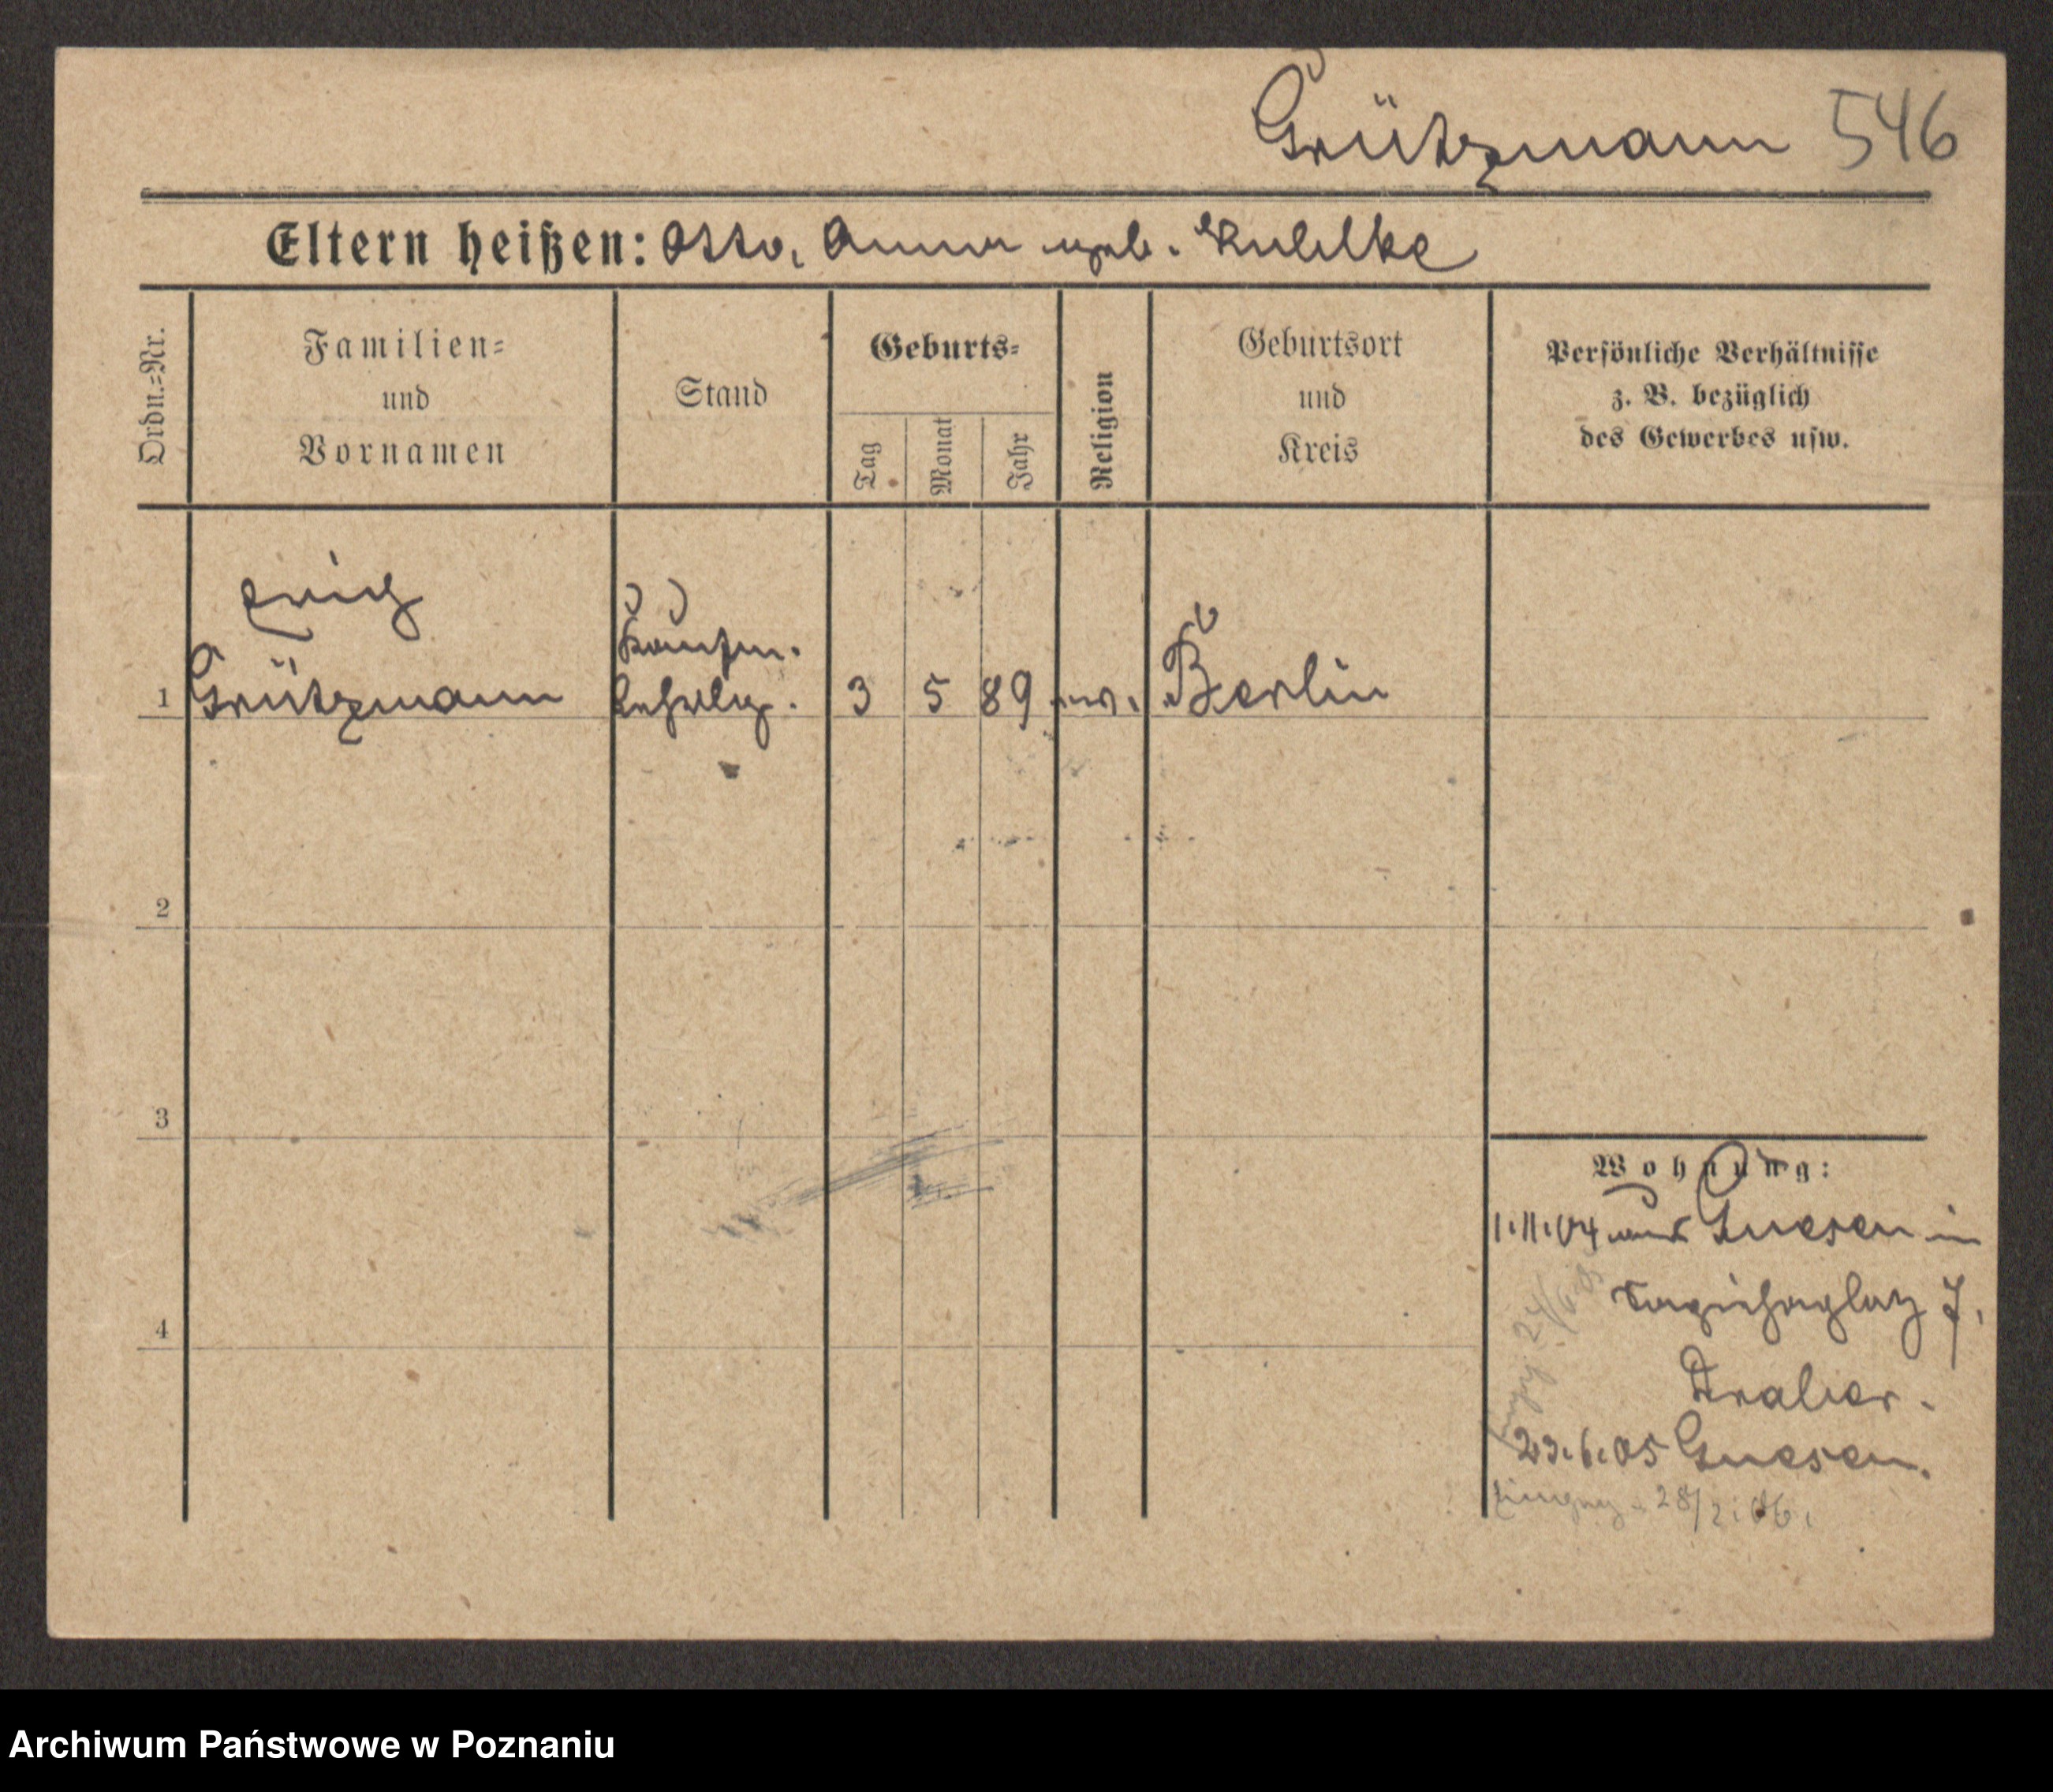 Grützmann 546
Eltern heißen: Otto, Anna geb.
Ordn.=Nr.
Familien=
und
Vornamen
Stand
Geburts=
Tag
Monat
Jahr
Religion
Geburtsort
und
Kreis
Persönliche Verhältnisse
z. B. bezüglich
des Gewerbes usw.
Erich
Kaufm.
1 Grützmann Lehrling. 3 5 89 ev. Berlin
2
3
4
Wohnung:
1.11.04 aus Gnesen in
Sapiehaplatz 7,
Draber.
23.6.05 Gnesen.
28/2.06.
Archiwum Państwowe w Poznaniu